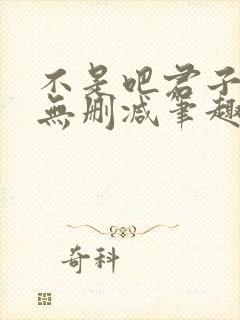 不是吧君子
無删减笔趣
奇科